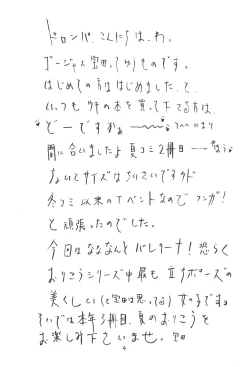 ドロンパ、こんにちは、わ。
ゴージャス宝田ってゆうものです。
はじめての方ははじめました、と、
いつもウチの本を買って下さる方は、
どーですかぁ〜〜〜
間に合いましたよ 夏コミ2冊目
ないとサイズはちいさいですケド
冬コミ以来のイベントなのでフンガ!
と頑張ったのでした。
今回はななんとバレリーナ!恐らく
おりこうシリーズ中最も立ちポーズの
美しい(と宝田は思ってる)女の子です。
それでは本年3冊目、夏のおりこうを
お楽しみ下さいませ。宝田